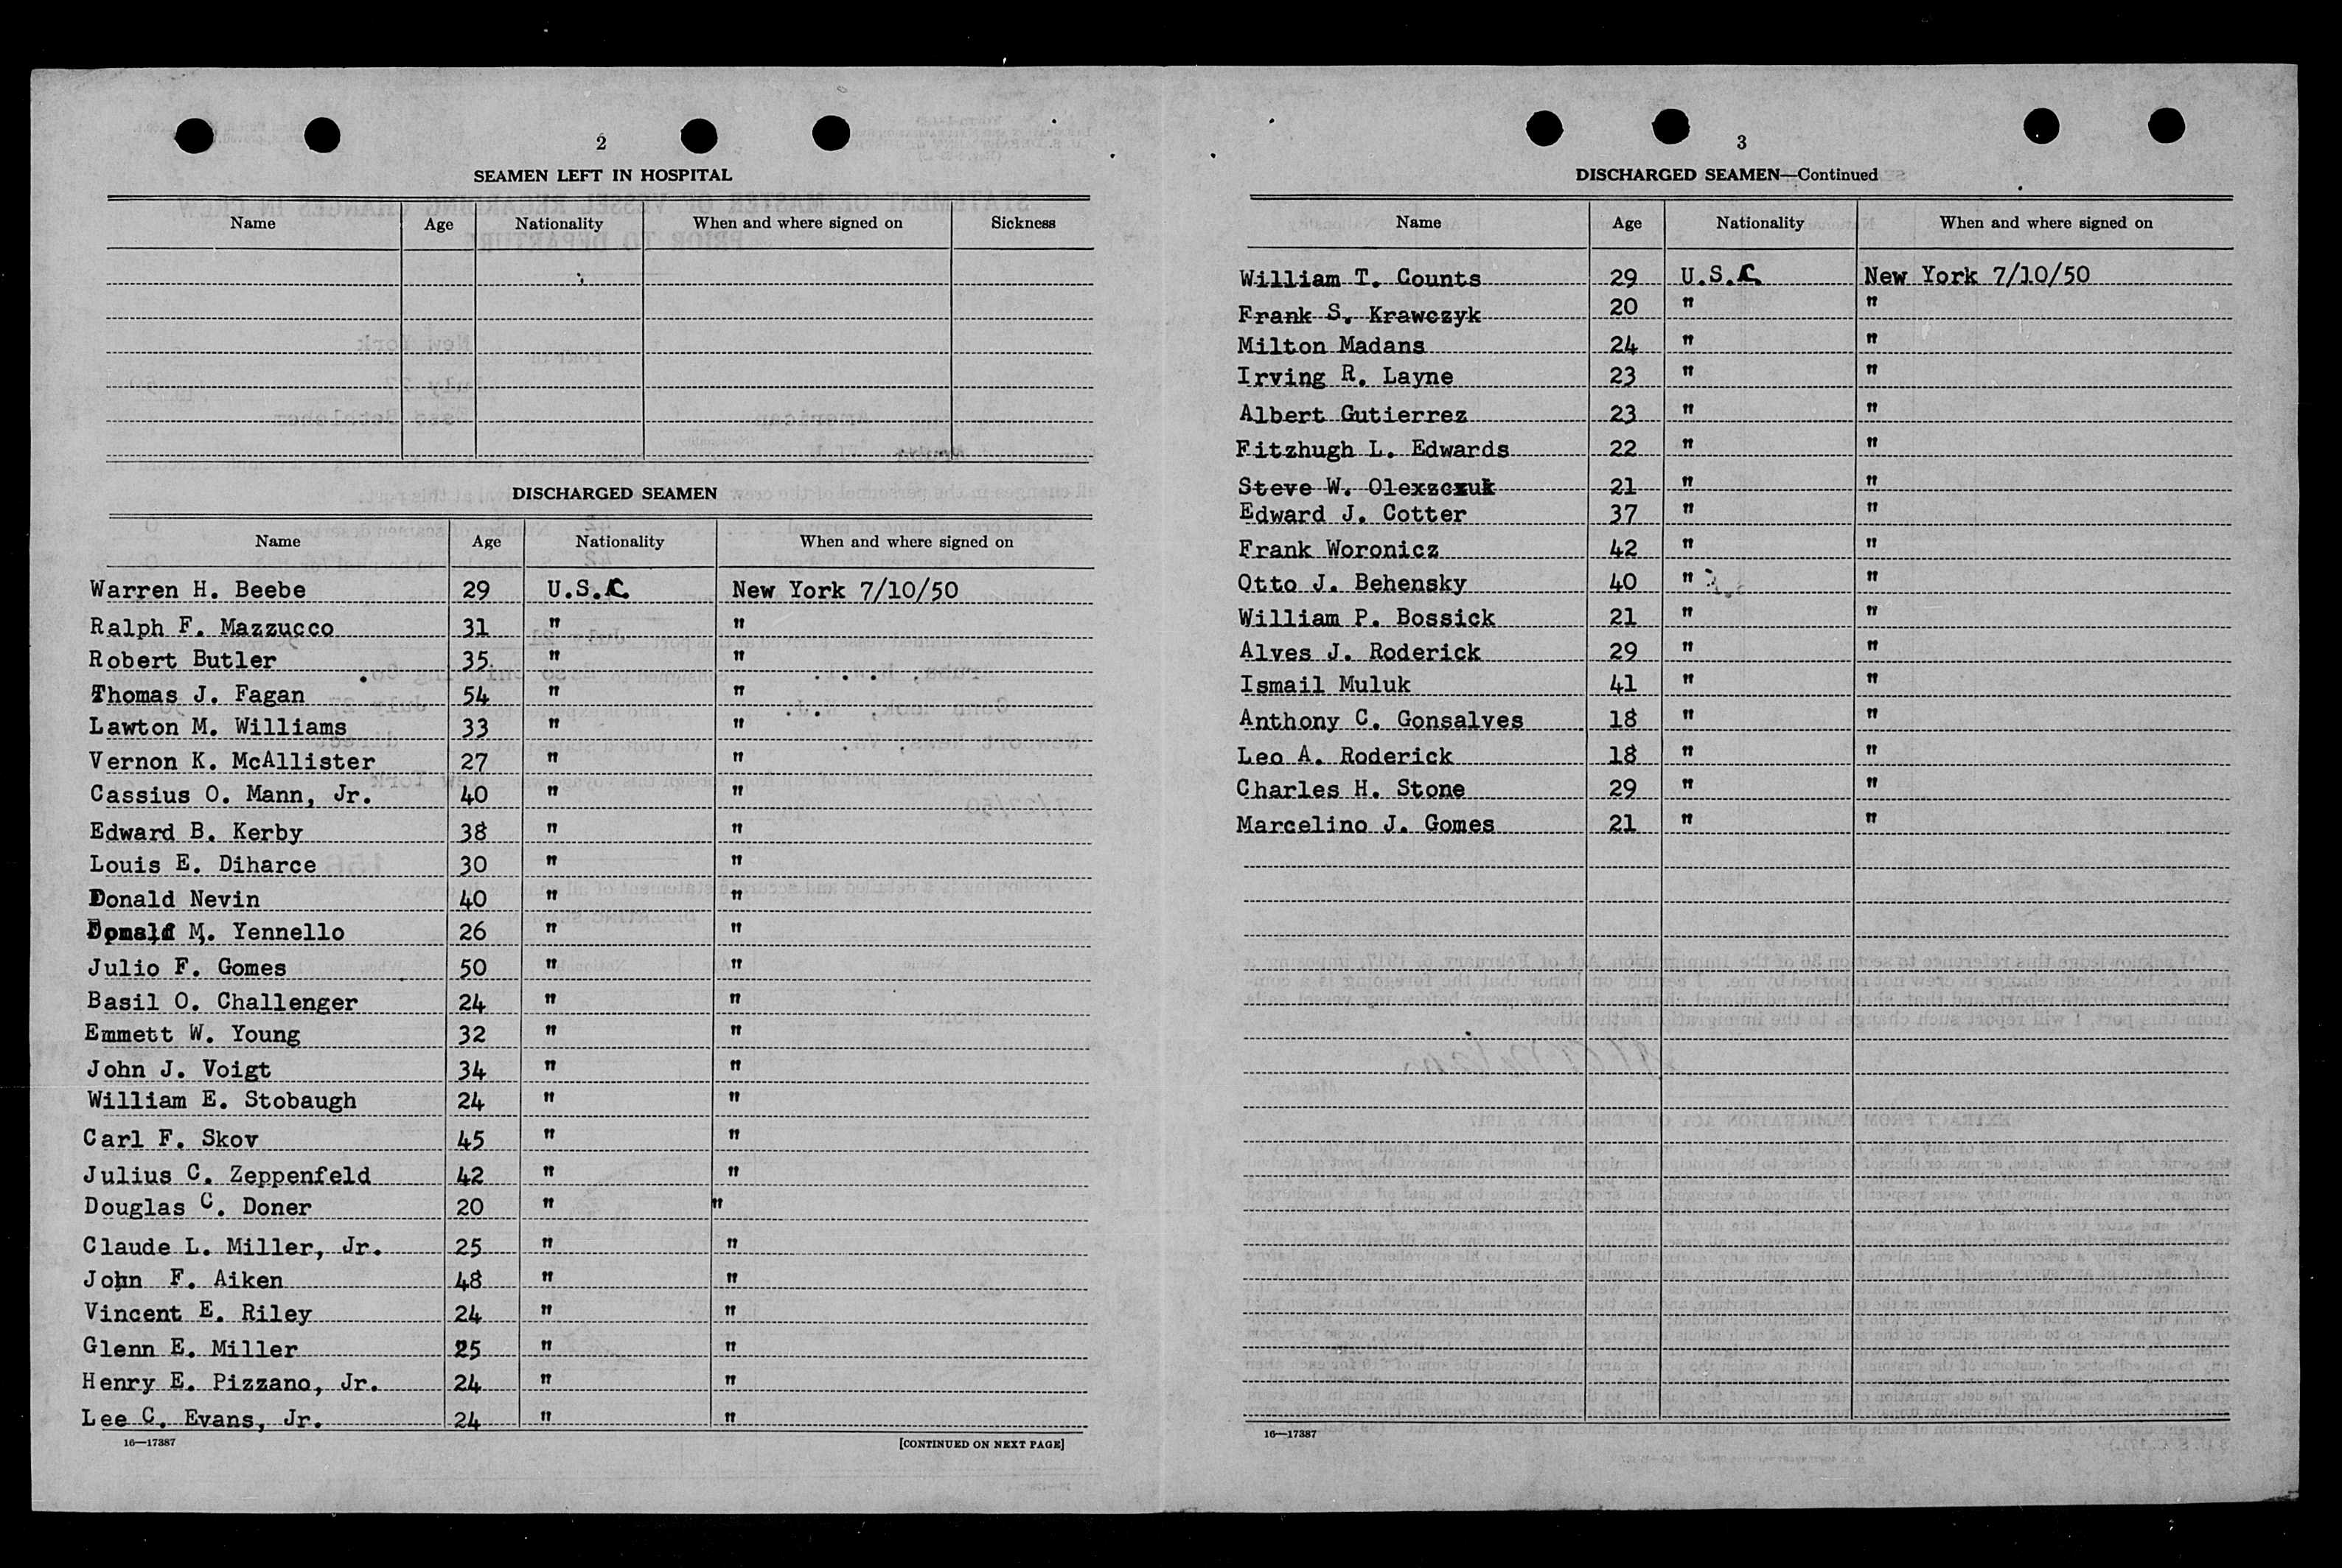 2
SEAMEN LEFT IN HOSPITAL
Name Age Nationality When and where signed on Sickness
DISCHARGED SEAMEN
Name Age Nationality When and where signed on
Warren H. Beebe 29 U.S.C. New York 7/10/50
Ralph F. Mazzucco 31 " "
Robert Butler 35 " "
Thomas J. Fagan 54 " "
Lawton M. Williams 33 " "
Vernon K. McAllister 27 " "
Cassius O. Mann, Jr. 40 " "
Edward B. Kerby 38 " "
Louis E. Diharce 30 " "
Donald Nevin 40 " "
M. Yennello 26 " "
Julio F. Gomes 50 " "
Basil O. Challenger 24 " "
Emmett W. Young 32 " "
John J. Voigt 34 " "
William E. Stobaugh 24 " "
Carl F. Skov 45 " "
Julius C. Zeppenfeld 42 " "
Douglas C. Doner 20 " "
Claude L. Miller, Jr. 25 " "
John F. Aiken 48 " "
Vincent E. Riley 24 " "
Glenn E. Miller 25 " "
Henry E. Pizzano, Jr. 24 " "
Lee C. Evans, Jr. 24 " "
16—17387 [CONTINUED ON NEXT PAGE]
3
DISCHARGED SEAMEN—Continued
Name Age Nationality When and where signed on
William T. Counts 29 U.S.C. New York 7/10/50
Frank S. Krawczyk 20 " "
Milton Madans 24 " "
Irving R. Layne 23 " "
Albert Gutierrez 23 " "
Fitzhugh L. Edwards 22 " "
Steve W. Olexzczuk 21 " "
Edward J. Cotter 37 " "
Frank Woronicz 42 " "
Otto J. Behensky 40 " "
William P. Bossick 21 " "
Alves J. Roderick 29 " "
Ismail Muluk 41 " "
Anthony C. Gonsalves 18 " "
Leo A. Roderick 18 " "
Charles H. Stone 29 " "
Marcelino J. Gomes 21 " "
16—17387